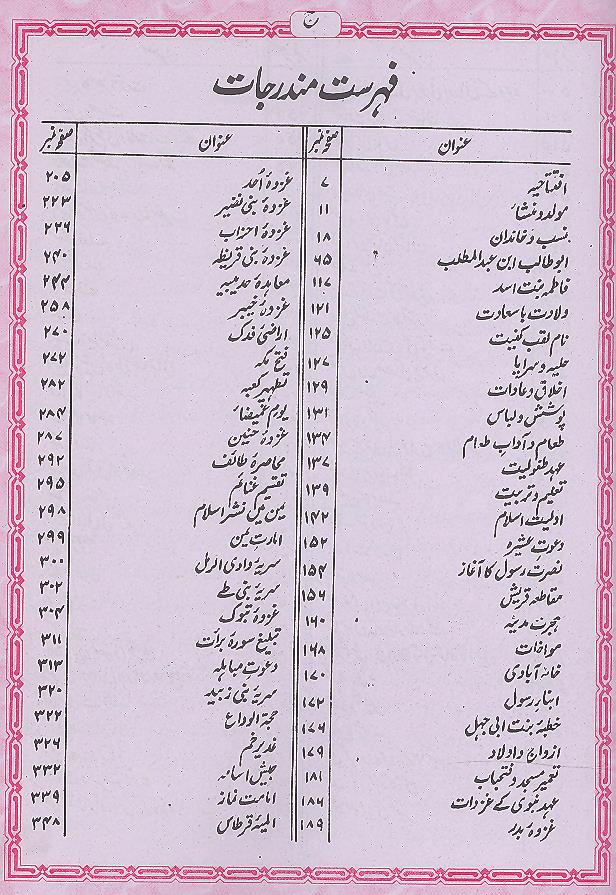 ج
فہرست مندرجات
عنوان صفحہ نمبر
افتتاحیہ ۷
مولد و منشاء ۱۱
نسب و خاندان ۱۸
ابو طالب ابن عبدالمطلب ۶۵
فاطمہ بنت اسد ۱۱۷
ولادت با سعادت ۱۲۱
نام لقب کنیت ۱۲۵
حلیہ و سراپا ۱۲۷
اخلاق و عادات ۱۲۹
پوشش و لباس ۱۳۱
طعام و آداب طعام ۱۳۴
عہد طفولیت ۱۳۷
تعلیم و تربیت ۱۳۹
اولیت اسلام ۱۴۲
دعوت عشیرہ ۱۵۲
نصرت رسول کا آغاز ۱۵۴
مقاطعہ قریش ۱۵۶
ہجرت مدینہ ۱۶۰
مواخات ۱۶۸
خانہ آبادی ۱۷۰
ابناء رسول ۱۷۲
خطبۂ بنت ابی جہل ۱۷۶
ازواج و اولاد ۱۷۹
تعمیر مسجد و فتحباب ۱۸۱
عہد نبوی کے غزوات ۱۸۶
غزوۂ بدر ۱۸۹
عنوان صفحہ نمبر
غزوۂ اُحد ۲۰۵
غزوۂ بنی نضیر ۲۲۳
غزوۂ احزاب ۲۲۶
غزوۂ بنی قریظہ ۲۴۰
معاہدۂ حدیبیہ ۲۴۴
غزوۂ خیبر ۲۵۸
اراضی فدک ۲۷۰
فتح مکہ ۲۷۲
تطہیر کعبہ ۲۸۲
یوم غمیضاء ۲۸۴
غزوۂ حنین ۲۸۷
محاصرۂ طائف ۲۹۲
تقسیم غنائم ۲۹۵
یمن میں نشر اسلام ۲۹۸
امارت یمن ۲۹۹
سریۂ وادی الرمل ۳۰۰
سریۂ بنی طے ۳۰۲
غزوۂ تبوک ۳۰۴
تبلیغ سورۂ برات ۳۱۱
دعوت مباہلہ ۳۱۳
سریۂ بنی زبید ۳۲۰
حجۃ الوداع ۳۲۲
غدیر خم ۳۲۶
جیش اسامہ ۳۳۲
امامت نماز ۳۳۹
المیۂ قرطاس ۳۴۸